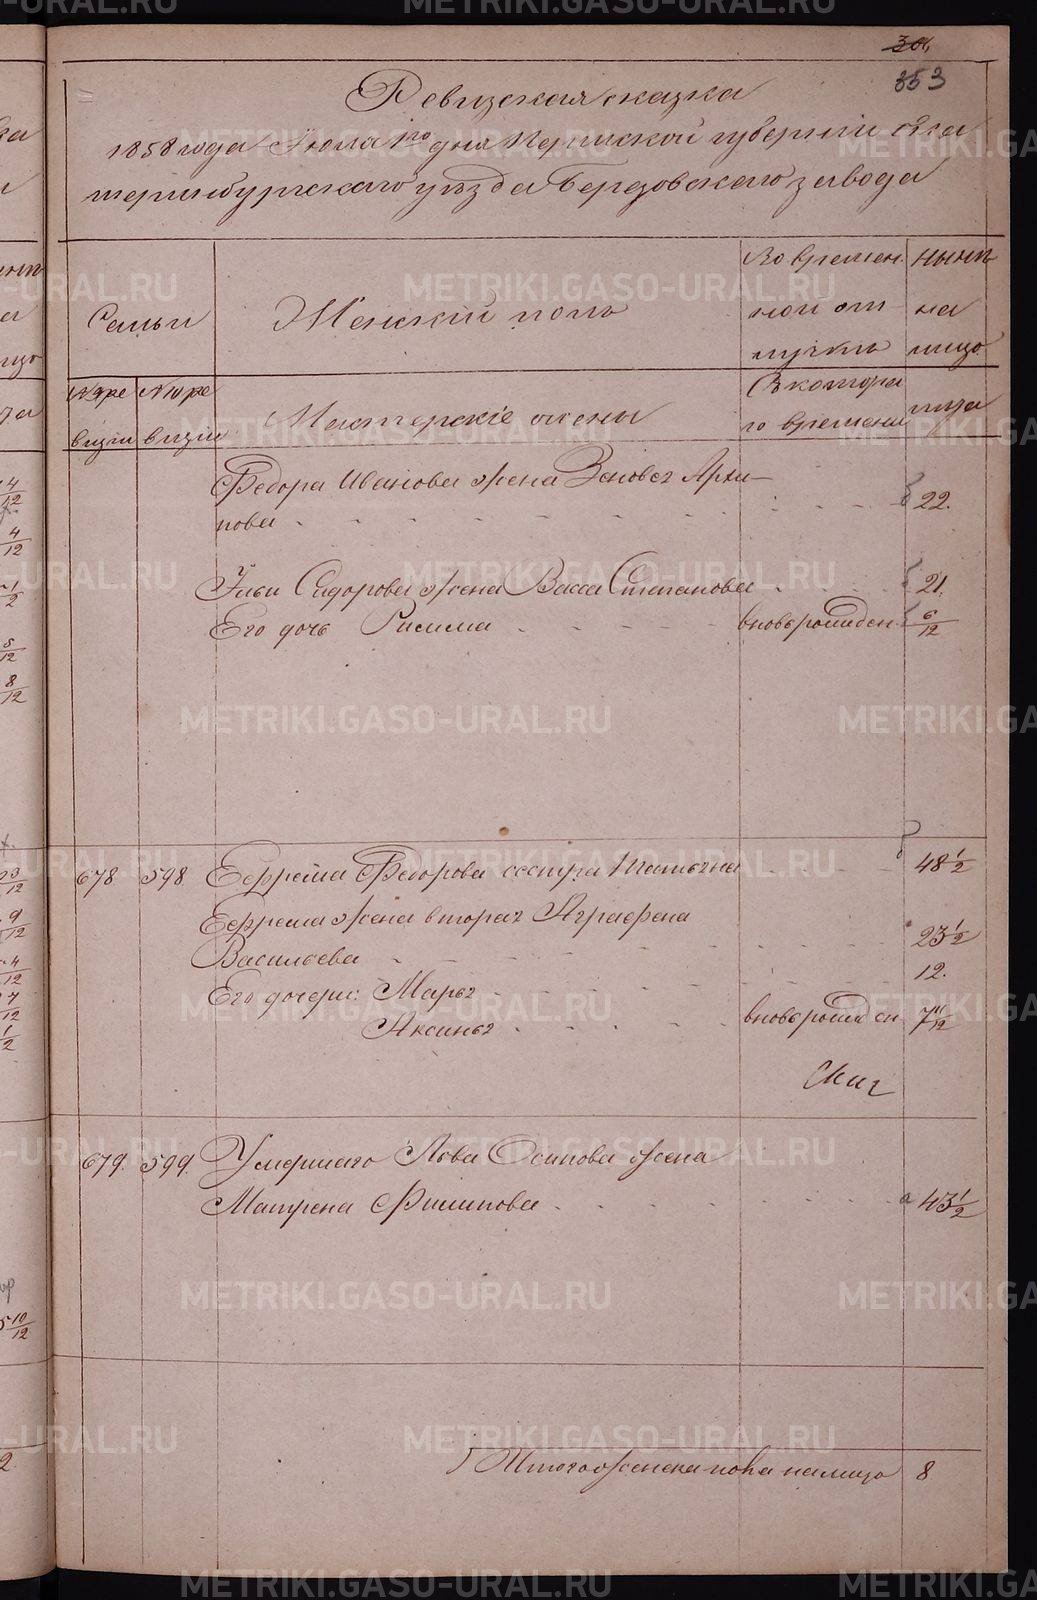 METRIKI.GASO-URAL.RU
30,
353
Ревизская сказка
1858 года Июля 1го дня Пермской губернии Ека
теринбургского уезда Березовского завода
Семьи
Женский полъ
Во времен
ной от
лучкѣ
Нынѣ
на
лицо
№ 9 ре
визiи
№ 10 ре
визiи
Мастерскiе жены
Съ котора
го времени
лѣта
Федора Иванова жена Зеновея Архи-
пова 22.
Ильи Сидорова жена Васса Степанова 21.
Его дочь вновьрожден. 6/12
678 598 Ефрема Федорова сестра Татьяна 48 1/2
Ефрема жена вторая Аграфена
Васильева 23 1/2
Его дочери: Марья 12.
Аксинья вновьрожден. 7 11/12
679. 599. Умершаго Льва Осипова жена
Матрена Филипова 43 1/2
Итого женска пола налицо 8